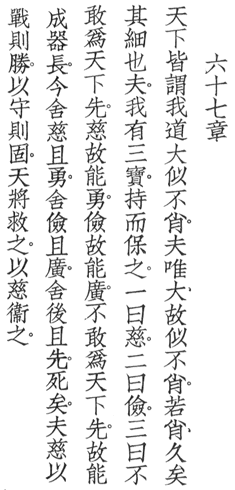 六十七章
天下皆謂我道大似不肖夫唯大、故似不肖。若肖、久矣
其細也夫。我有三寶持而保之。一曰慈。二曰儉。三曰不
敢爲天下先。慈故能勇。儉故能廣。不敢爲天下先。故能
成器長。今舍慈且勇。舍儉且廣。舍後且先。死矣。夫慈以
戰則勝。以守則固。天將救之。以慈衞之。